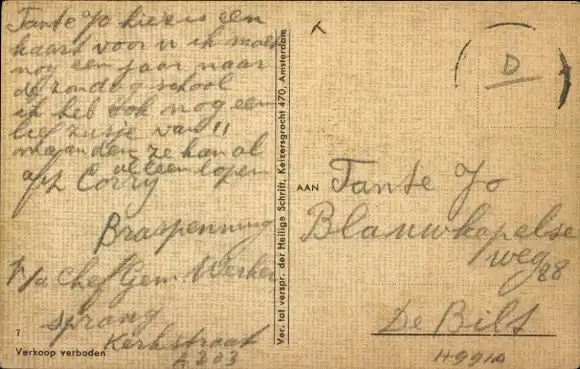 Tante Jo hier is een
kaart voor u ik moet
nog een jaar naar
de zondag school
ik heb ook nog een
lief zusje van 11
maanden ze kan al
alleen lopen
afz Corry
Braspenning
p/a Chef Gem. Werken
Sprang
Kerkstraat
A 203
7
Verkoop verboden
Ver. tot verspr. der Heilige Schrift, Keizersgracht 470, Amsterdam
D
AAN
Tante Jo
Blauwkapelse
weg 88
De Bilt